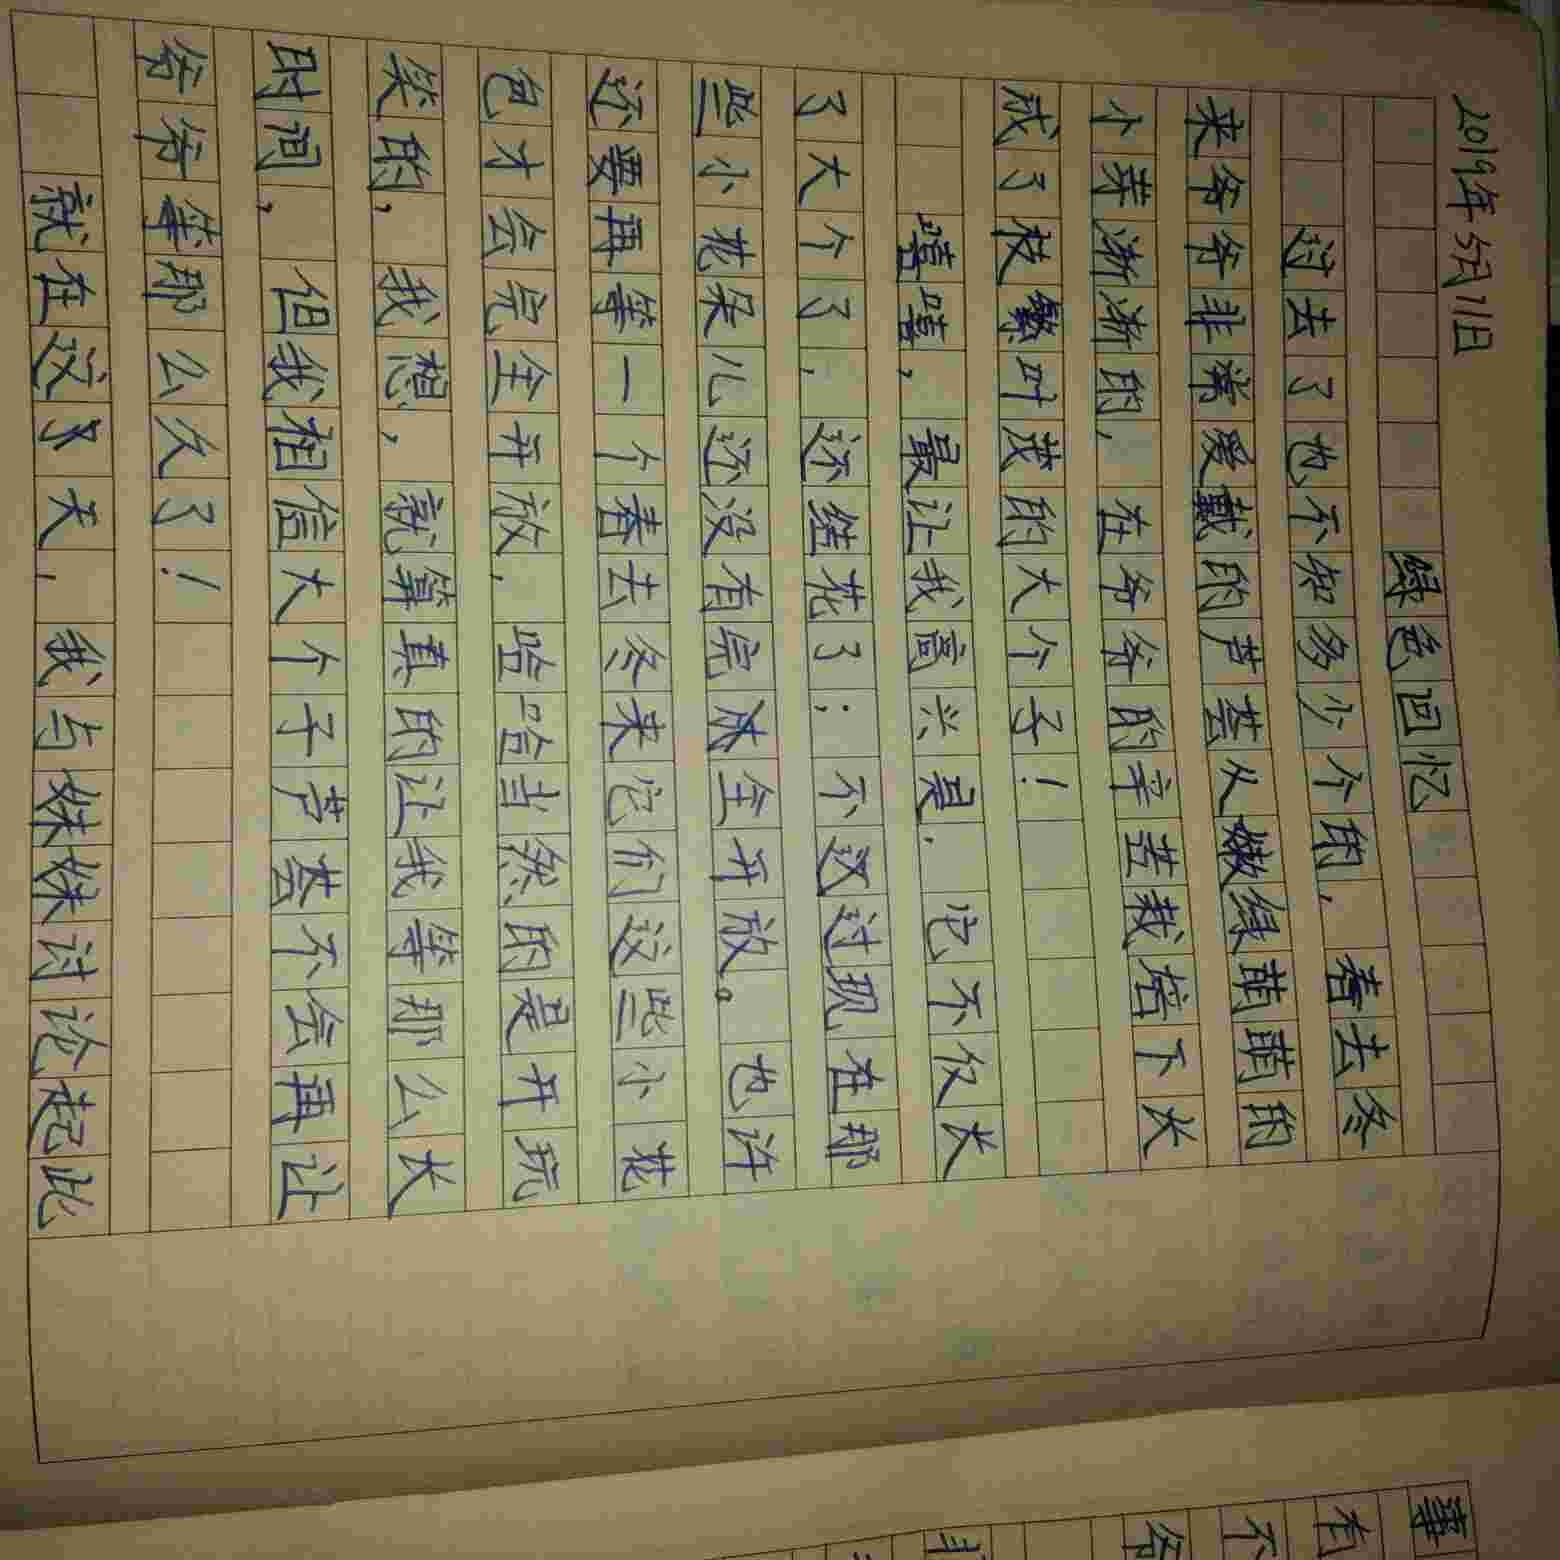 2019年5月11日
绿色回忆
过去了也不知多少个的，春去冬
来爷爷非常爱戴的芦荟从嫩绿萌萌的
小芽渐渐的，在爷爷的辛苦栽培下大
成了枝繁叶茂的大个子！
嘻嘻，最让我高兴是，它不仅大
了大个了，还结花了；不这过现在那
些小花朵儿还没有完沐全开放。也许
还要再等一个春去冬来它们这些小花
包才会完全开放，哈哈当然的是开玩
笑的，我想，就算真的让我等那么大
时间，但我相信大个子芦荟不会再让
爷爷等那么久了！
就在这个天，我与妹妹讨论起此
事
有
不
爷